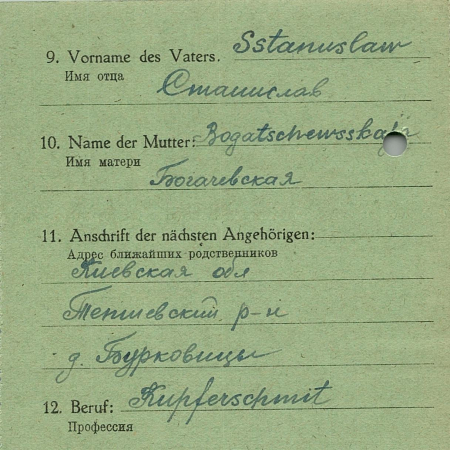 9. Vorname des Vaters. Sstanusław
Имя отца
Станислав
10. Name der Mutter: Bogatschewsskaja
Имя матери
Богачевская
11. Anschrift der nächsten Angehörigen:
Адрес ближайших родственников
Киевская обл
Тетиевский р-н
д. Бурковицы
12. Beruf: Kupferschmit
Профессия